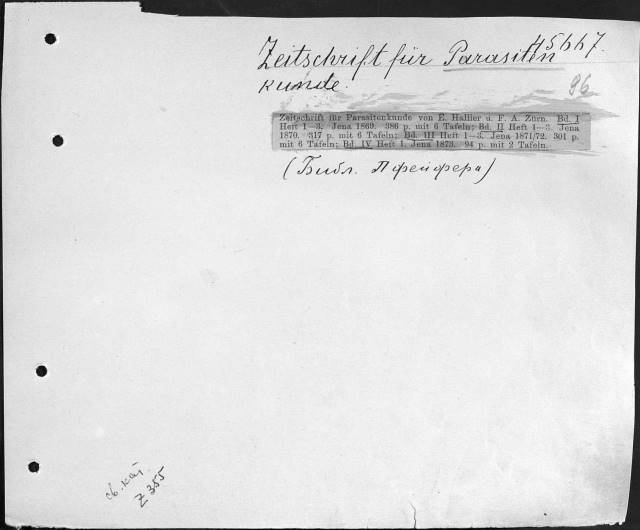 45667.
Zeitschrift für Parasiten
kunde.
96
Zeitschrift für Parasitenkunde von E. Hallier u. F. A. Zürn. Bd. I
Heft 1—3. Jena 1869. 386 p. mit 6 Tafeln; Bd. II Heft 1—3. Jena
1870. 317 p. mit 6 Tafeln; Bd. III Heft 1—3. Jena 1871/72. 301 p.
mit 6 Tafeln; Bd. IV Heft 1. Jena 1873. 94 p. mit 2 Tafeln.
(Библ. Пфейфера)
Z 355